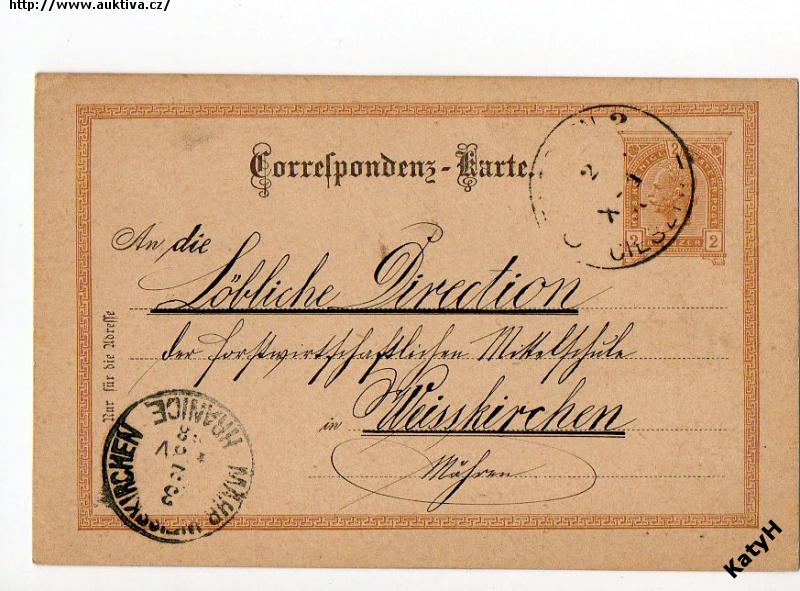 http://www.auktiva.cz/
Correspondenz-Karte.
2
2 2
CIESZYN
An die
Löbliche Direction
der forstwirtschaftlichen Mittelschule
in Weisskirchen
Mähren
Nur für die Adresse
MÄHR. WEISSKIRCHEN
HRANICE
KatyH